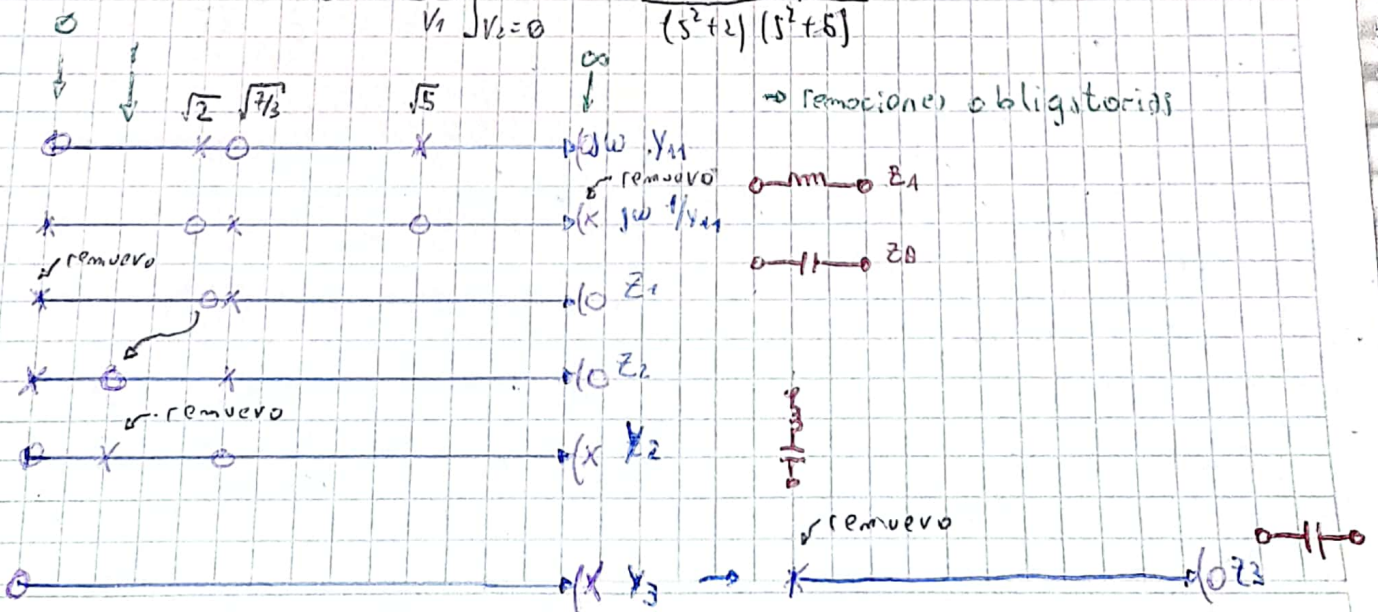 V₁ ]V₂=0 (s²+2) (s²+5)
0 ∞
√2 √7/3 √5 → remociones obligatorias
jω Y₁₁
remuevo Z_A
jω 1/Y₁₁
remuevo Z_B
Z₁
Z₂
remuevo
Y₂
remuevo
Y₃ → Z₃